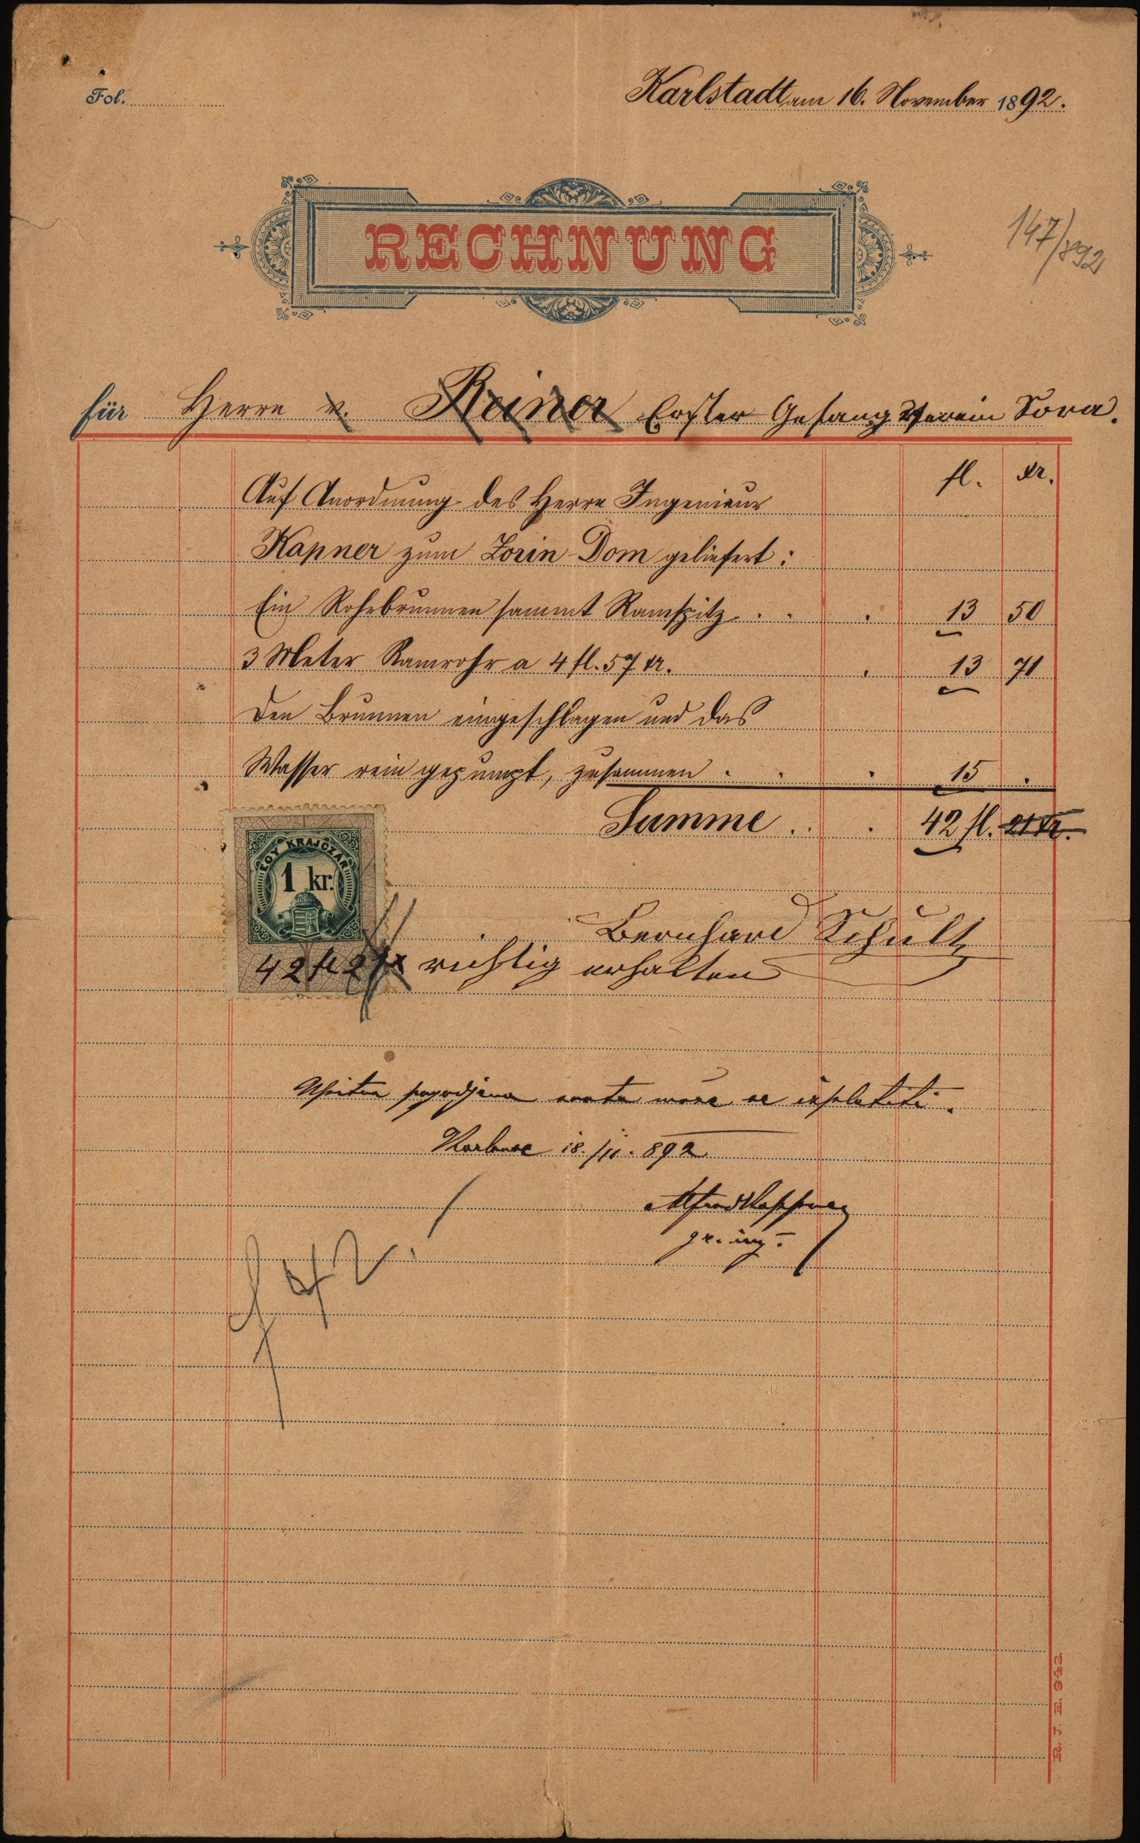 Fol.
Karlstadt am 16. November 1892.
RECHNUNG
147/892
für Herrn v. Reiner Erster Gesang Verein Zora.
fl. kr.
Auf Anordnung des Herrn Ingenieur
Kapner zum Zorin-Dom geliefert:
Ein Rohrbrunnen sammt Ramspitz . . . 13 50
3 Meter Ramrohr a 4 fl. 57 kr. . 13 71
Den Brunnen eingeschlagen und das
Wasser rein gepumpt, zusammen . . . 15 .
Summe . . . 42 fl. 21 kr.
EGY KRAJCZÁR
1 kr.
Bernhard Schultz
42 fl 21 x richtig erhalten
pogodjena svota može se isplatiti.
Karlovac 18./11. 892
Alfred Kappner
gr. ing.
f 42.